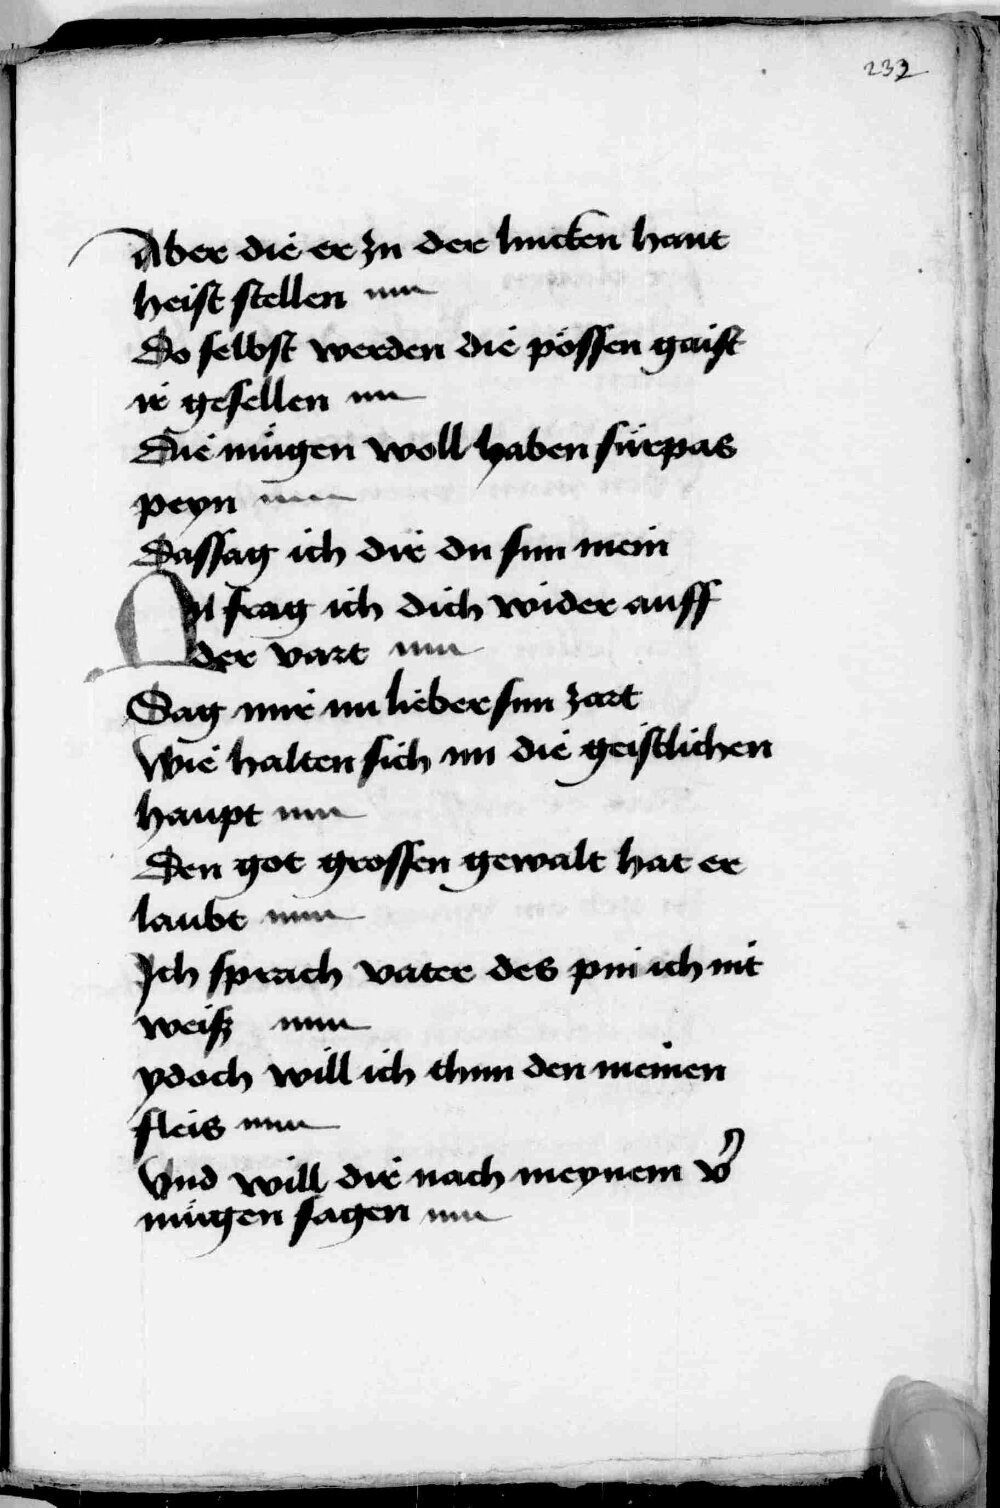 232
Aber die er zu der lincken hant
heist stellen
Do selbst werden die pössen gaist
ir gesellen
Die mügen woll haben fürpas
peyn
Das sag ich dir du sun mein
Nu frag ich dich wider auff
der vart
Sag mir nu lieber sun zart
Wie halten sich nu die geistlichen
haupt
Den got grossen gewalt hat er
laubt
Ich sprach vater des pin ich nit
weisz
ydoch will ich thun den meinen
fleis
Vnd will dir nach meynem v̄
mügen sagen